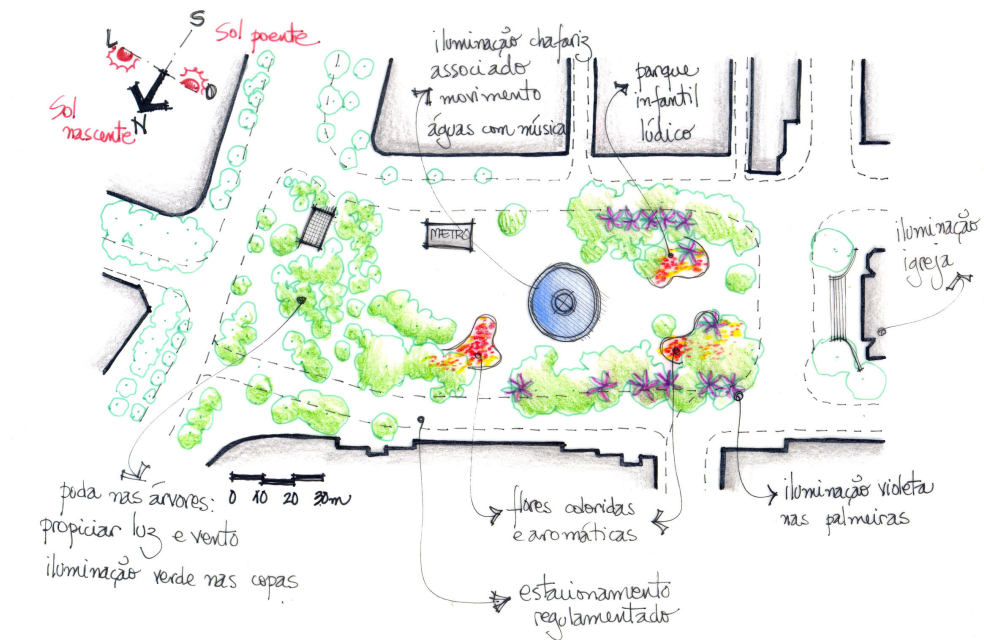 S
L
Sol poente
O
Sol
nascente
N
iluminação chafariz
associado
movimento
águas com música
parque
infantil
lúdico
METRÔ
iluminação
igreja
0 10 20 30m
poda nas árvores:
propiciar luz e vento
iluminação verde nas copas
flores coloridas
e aromáticas
iluminação violeta
nas palmeiras
estacionamento
regulamentado